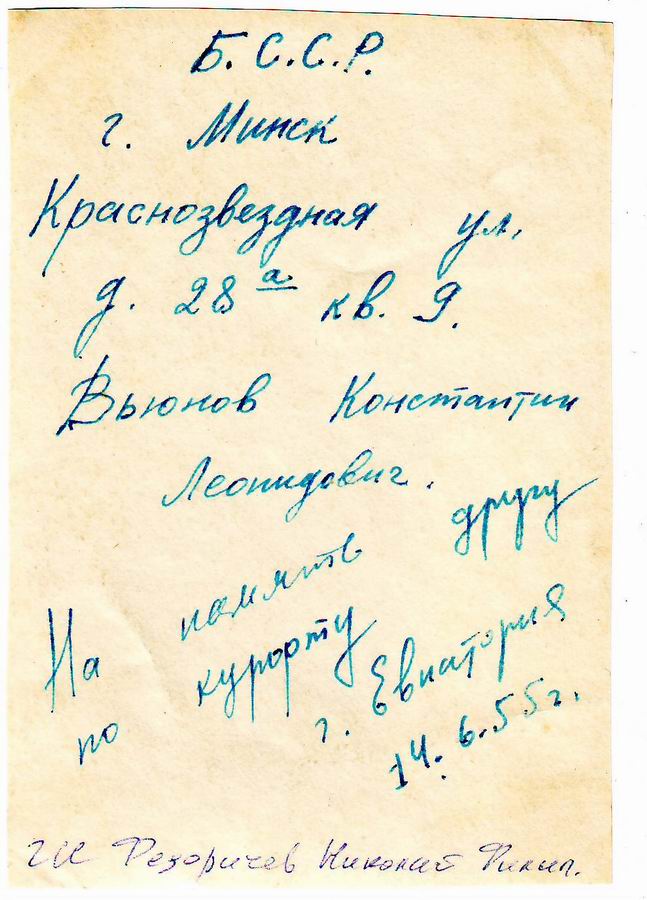 Б.С.С.Р.
г. Минск
Краснозвездная ул.
д. 28а кв. 9.
Вьюнов Константин
Леонидович.
На память другу
по курорту
г. Евпатория
14.6.55г.
Николай Филип.